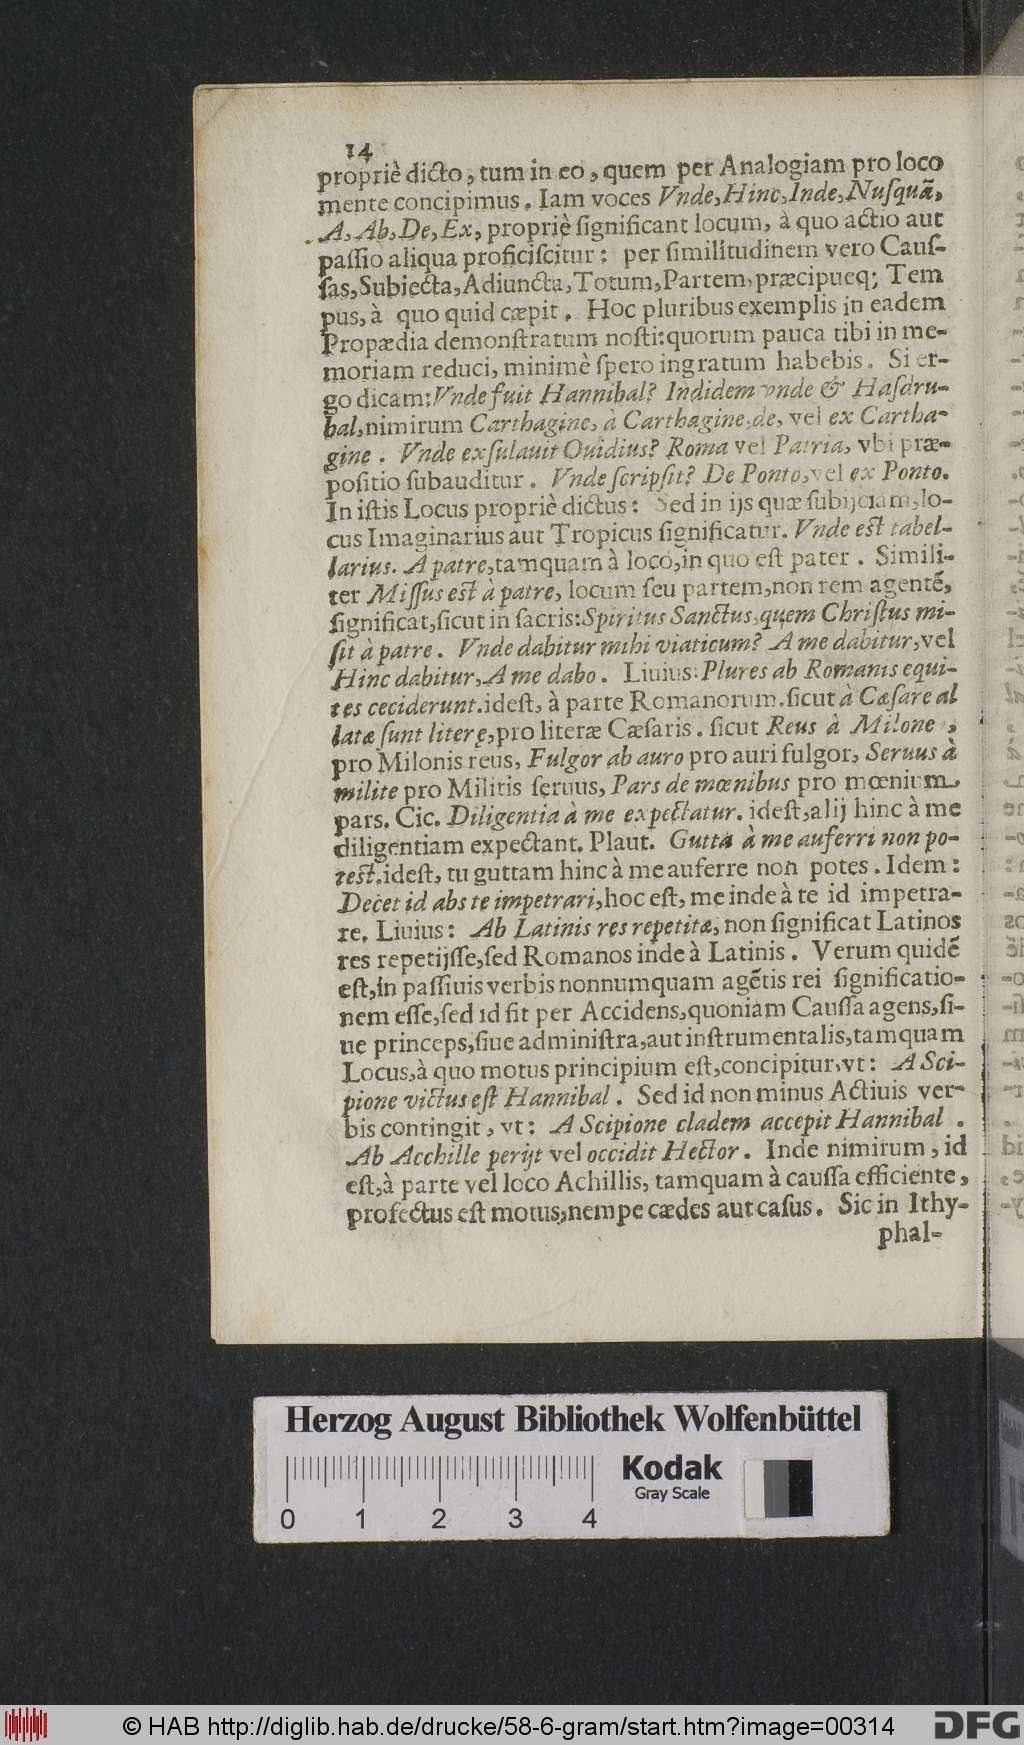 14
propriè dicto, tum in eo, quem per Analogiam pro loco
mente concipimus. Iam voces Vnde, Hinc, Inde, Nuſquã,
A, Ab, De, Ex, propriè ſignificant locum, à quo actio aut
paſſio aliqua proficiſcitur: per ſimilitudinem vero Cauſ-
ſas, Subiecta, Adiuncta, Totum, Partem, præcipueq; Tem
pus, à quo quid cæpit. Hoc pluribus exemplis in eadem
Propædia demonſtratum noſti: quorum pauca tibi in me-
moriam reduci, minimè ſpero ingratum habebis. Si er-
go dicam: Vnde fuit Hannibal? Indidem vnde & Haſdru-
bal, nimirum Carthagine, à Carthagine, de, vel ex Cartha-
gine. Vnde exſulauit Ouidius? Roma vel Patria, vbi præ-
poſitio ſubauditur. Vnde ſcripſit? De Ponto, vel ex Ponto.
In iſtis Locus propriè dictus: Sed in ijs quæ ſubijciam, lo-
cus Imaginarius aut Tropicus ſignificatur. Vnde eſt tabel-
larius. A patre, tamquam à loco, in quo eſt pater. Simili-
ter Miſſus eſt à patre, locum ſeu partem, non rem agentẽ,
ſignificat, ſicut in ſacris: Spiritus Sanctus, quem Chriſtus mi-
ſit à patre. Vnde dabitur mihi viaticum? A me dabitur, vel
Hinc dabitur, A me dabo. Liuius: Plures ab Romanis equi-
tes ceciderunt. ideſt, à parte Romanorum. ſicut à Cæſare al
latæ ſunt literę, pro literæ Cæſaris. ſicut Reus à Milone,
pro Milonis reus, Fulgor ab auro pro auri fulgor, Seruus à
milite pro Militis ſeruus, Pars de mœnibus pro mœnium
pars. Cic. Diligentia à me expectatur. ideſt, alij hinc à me
diligentiam expectant. Plaut. Gutta à me auferri non po-
teſt. ideſt, tu guttam hinc à me auferre non potes. Idem:
Decet id abs te impetrari, hoc eſt, me inde à te id impetra-
re. Liuius: Ab Latinis res repetitæ, non ſignificat Latinos
res repetijſſe, ſed Romanos inde à Latinis. Verum quidẽ
eſt, in paſſiuis verbis nonnumquam agẽtis rei ſignificatio-
nem eſſe, ſed id fit per Accidens, quoniam Cauſſa agens, ſi-
ue princeps, ſiue adminiſtra, aut inſtrumentalis, tamquam
Locus, à quo motus principium eſt, concipitur, vt: A Sci-
pione victus eſt Hannibal. Sed id non minus Actiuis ver-
bis contingit, vt: A Scipione cladem accepit Hannibal.
Ab Acchille perijt vel occidit Hector. Inde nimirum, id
eſt, à parte vel loco Achillis, tamquam à cauſſa efficiente,
profectus eſt motus, nempe cædes aut caſus. Sic in Ithy-
phal-
Herzog August Bibliothek Wolfenbüttel
Kodak
Gray Scale
0 1 2 3 4
© HAB http://diglib.hab.de/drucke/58-6-gram/start.htm?image=00314
DFG